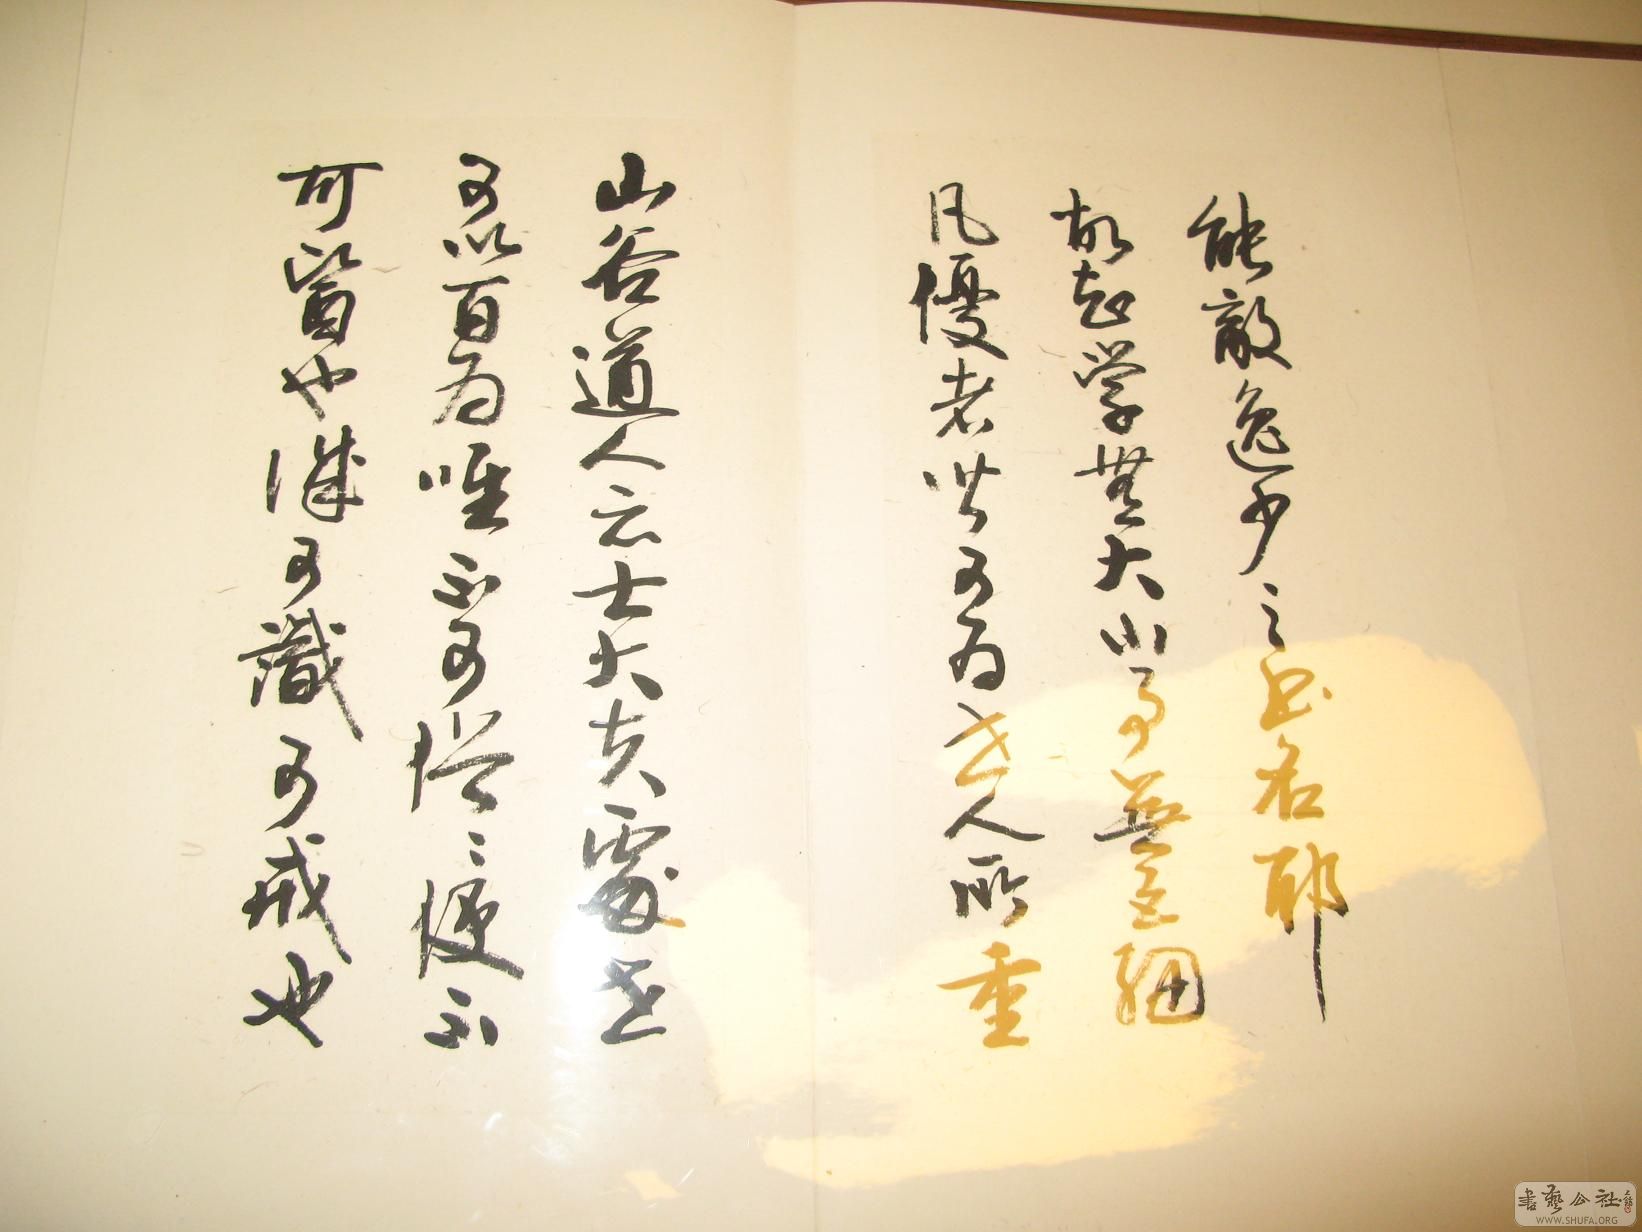 能敵逸少之書名耶
故知學無大小事無巨細
凡優者皆可為世人所重
山谷道人云士大夫處世
可以百為唯不可俗俗便不
可醫也誠可識可戒也
書藝公社
WWW.SHUFA.ORG